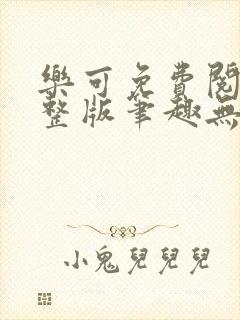 樂可免費閱
整版筆趣無
小鬼兒兒兒